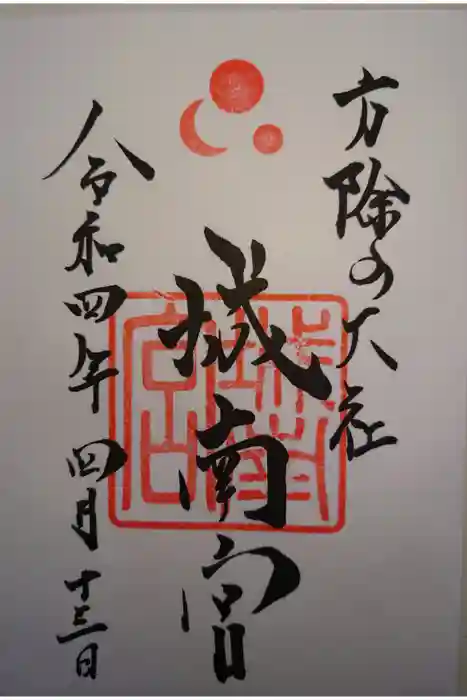 方除の大社
城南宮
令和四年 四月 十三日